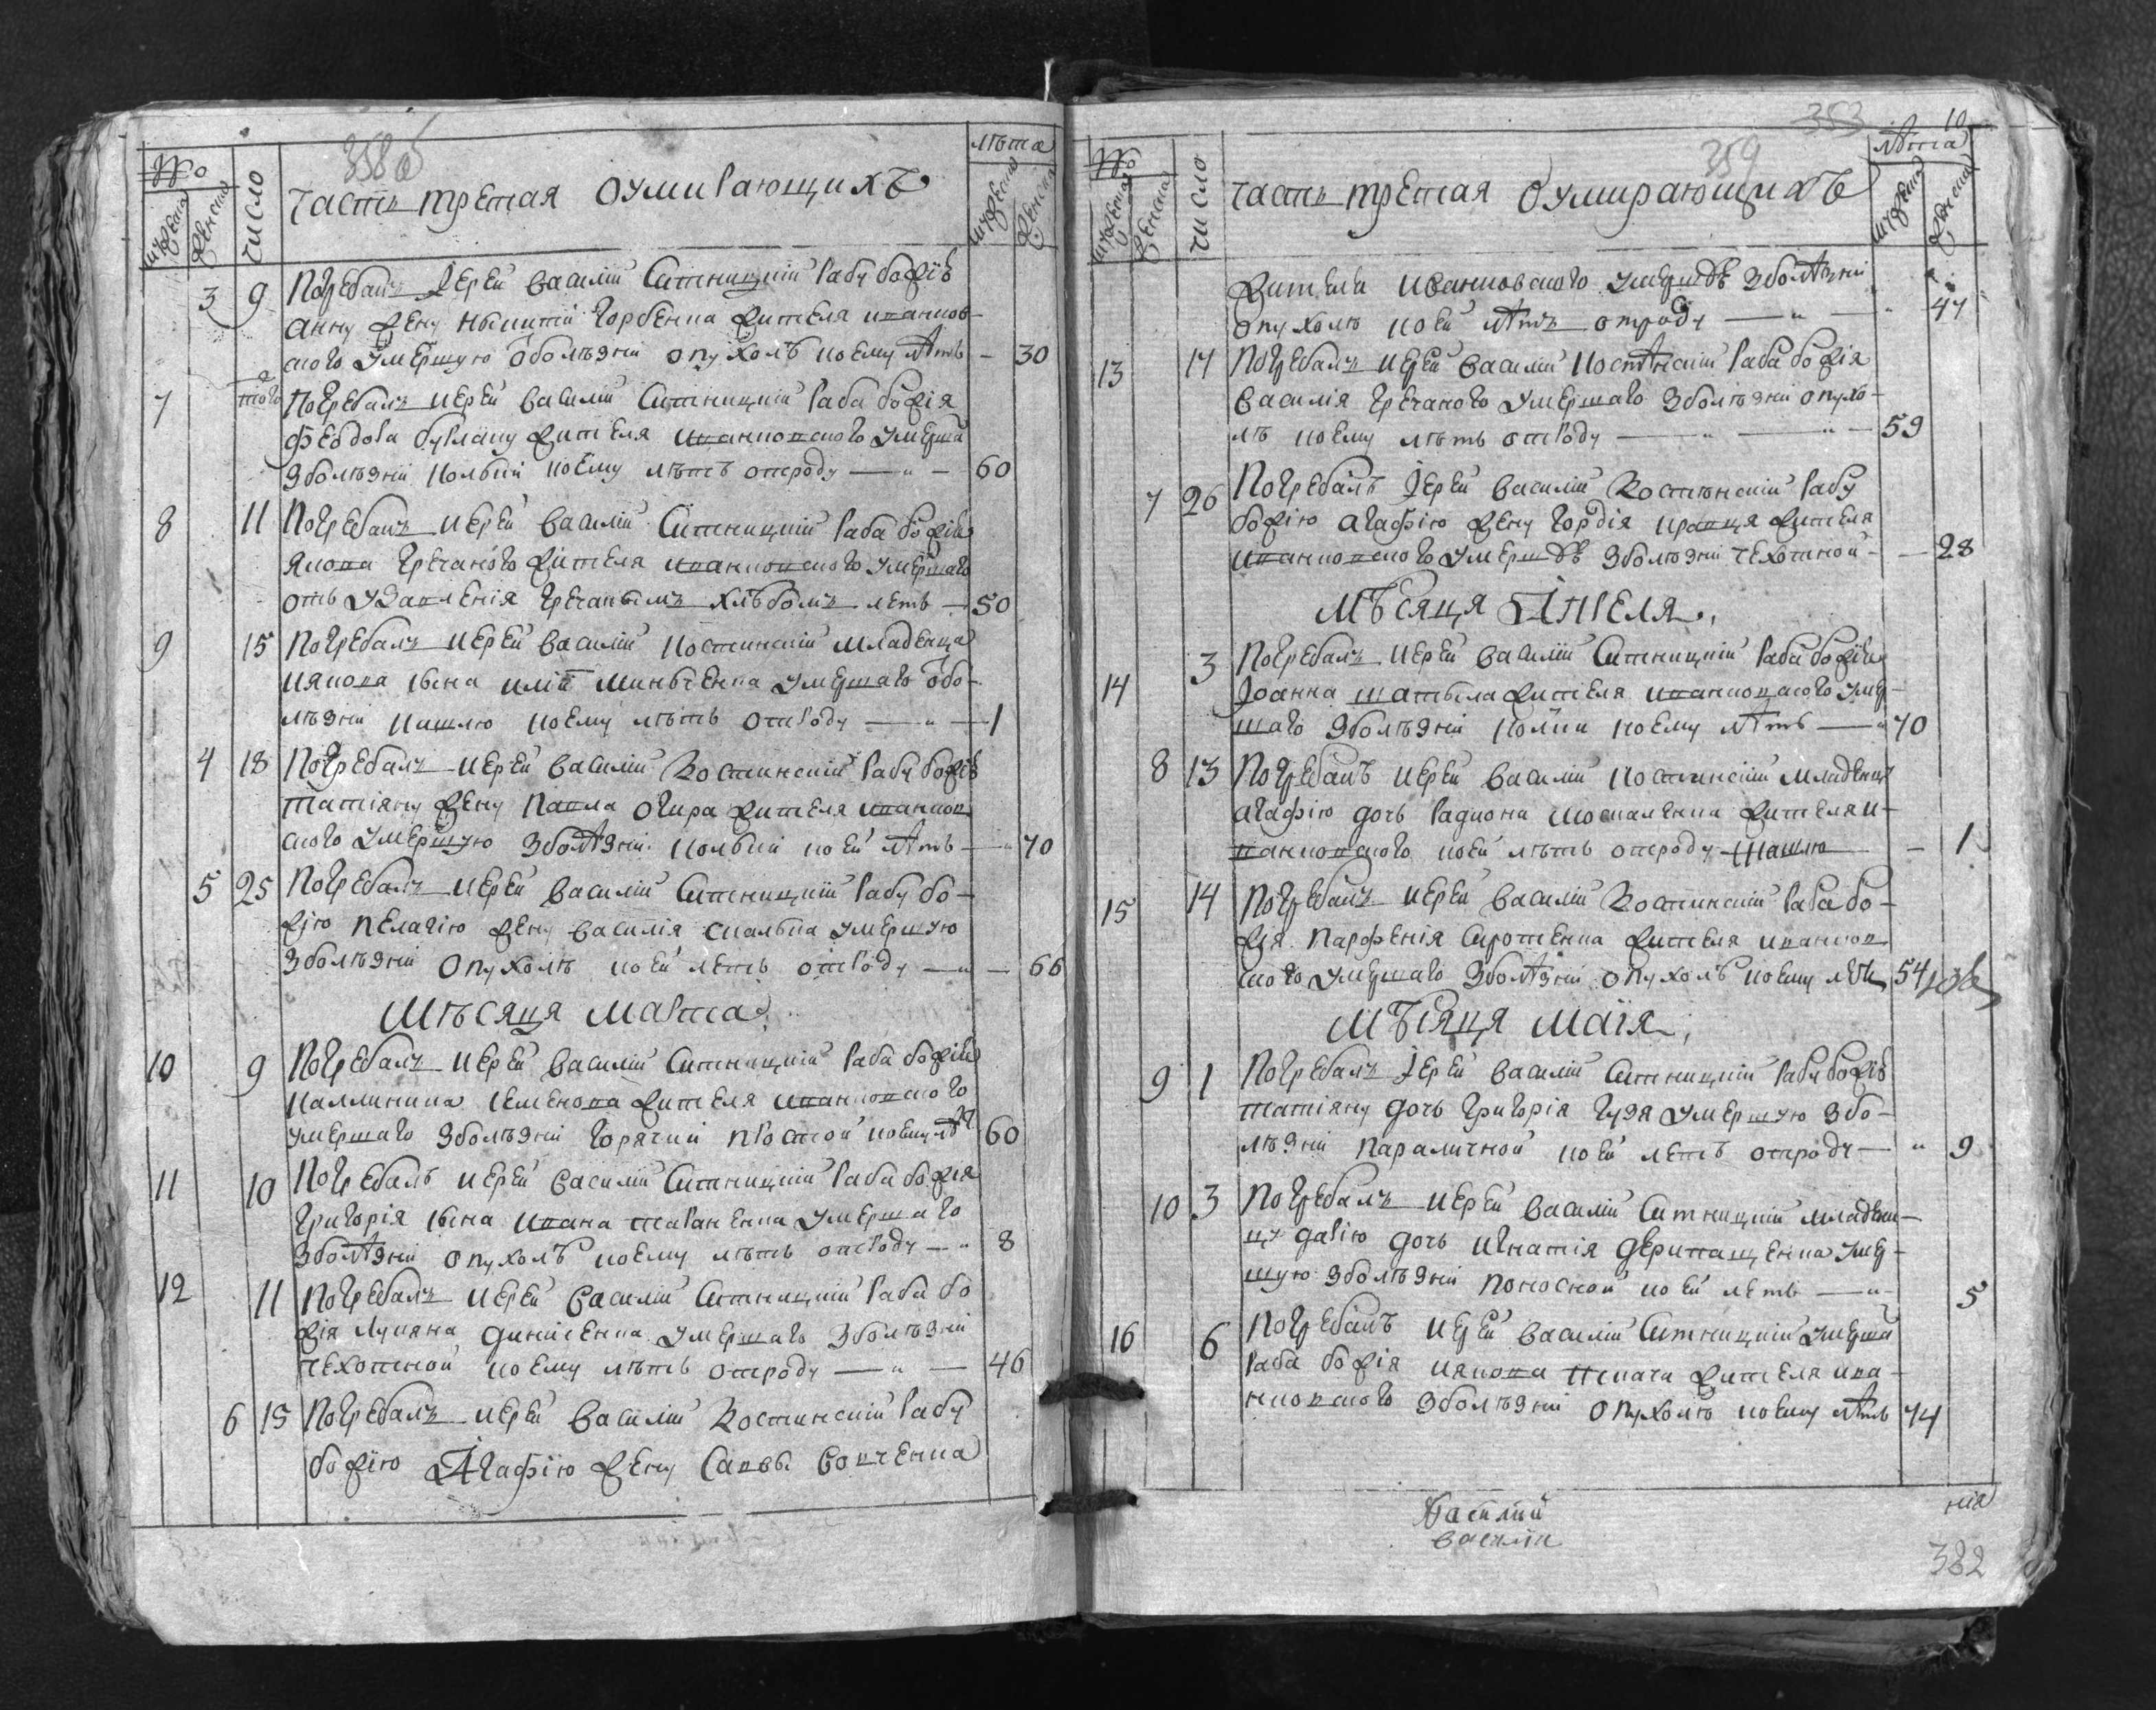 358 об
№
мужеска
женска
число
часть третая о умирающихъ
лѣта
мужеска
женска
3 9 Погребалъ Іерей Василій Ситницкій рабу божію
анну жену Никити Горбенка жителя иванков-
ского умершую зболѣзни опухолѣ коему лѣтъ — 30
7 того Погребалъ иерей Василій Ситницкій раба божія
феодора жителя иванковского умерша
зболѣзни кольки коему лѣтъ отроду — " — 60
8 11 Погребалъ иерей Василій Ситницкій раба божія
якова Гречаного жителя иванковского умершаго
отъ удавленія гречанымъ хлѣбомъ летъ — 50
9 15 Погребалъ иерей Василій Костинскій младенца
иякова сына иліи Минченка умершаго збо-
лѣзни кашлю коему лѣтъ отроду — " — 1
4 18 Погребалъ иерей Василій Костинскій рабу божію
татіяну жену Павла огира жителя иванков
ского умершую зболѣзни кольки коей лѣтъ — " 70
5 25 Погребалъ иерей Василій Ситницкій рабу бо-
жію пелагію жену Василія умершую
зболѣзни опухолѣ коей летъ отроду — " — 66
Мѣсяця Марта
10 9 Погребалъ иерей Василій Ситницкій раба божія
каллиника Семенова жителя иванковского
умершаго зболѣзни горячки простой коему лѣтъ 60
11 10 Погребалъ иерей Василій Ситницкій раба божія
григорія сына Ивана тараненка умершаго
зболѣзни опухолѣ коему лѣтъ отроду — " 8
12 11 Погребалъ иерей Василій Ситницкій раба бо
жія Лукяна денисенка умершаго зболѣзни
чехотной коему лѣтъ отроду — " — 46
6 15 Погребалъ иерей Василій Костинскій рабу
божію Агафію жену Савы Вовченка
353
359
10
№
мужеска
женска
число
часть третая о умирающихъ
лѣта
мужеска
женска
жителя иванковского умершѣ зболѣзни
опухолѣ коей лѣтъ отроду — " — " 47
13 17 Погребалъ иерей Василій Костѣнскій раба божія
Василія Гречаного умершаго зболѣзни опухо-
лѣ коему лѣтъ отроду — " — " — 59
7 26 Погребалъ Іерей Василій Костѣнскій рабу
божію агафію жену Гордія кравця жителя
иванковского умершѣ зболѣзни чехотной — — 28
Мѣсяця Апреля
14 3 Погребалъ иерей Василій Ситницкій раба божія
Іоанна шатила жителя иванковского умер-
шаго зболѣзни колки коему лѣтъ — " 70
8 13 Погребалъ иерей Василій Костинскій младенцу
агафію дочь Радиона Москаленка жителя и-
ванковского коей лѣтъ отроду кашлю — 1
15 14 Погребалъ иерей Василій Костинскій раба бо-
жія Парфенія Сиротенка жителя иванков
ского умершаго зболѣзни опухолѣ коему лѣтъ 54
Мѣсяця Маія
9 1 Погребалъ Іерей Василій Ситницкій рабу божію
татіяну дочь Григорія Гузя умершую збо-
лѣзни параличной коей летъ отроду — " 9
10 3 Погребалъ иерей Василій Ситницкій младен-
цу дарію дочь игнатія Деркаченка умер-
шую зболѣзни поносной коей летъ — " — 5
16 6 Погребалъ иерей Василій Ситницкій умерша
раба божія иякова жителя ива-
нковского зболѣзни опухолѣ коему лѣтъ 74
Василій
Василій
нія
382